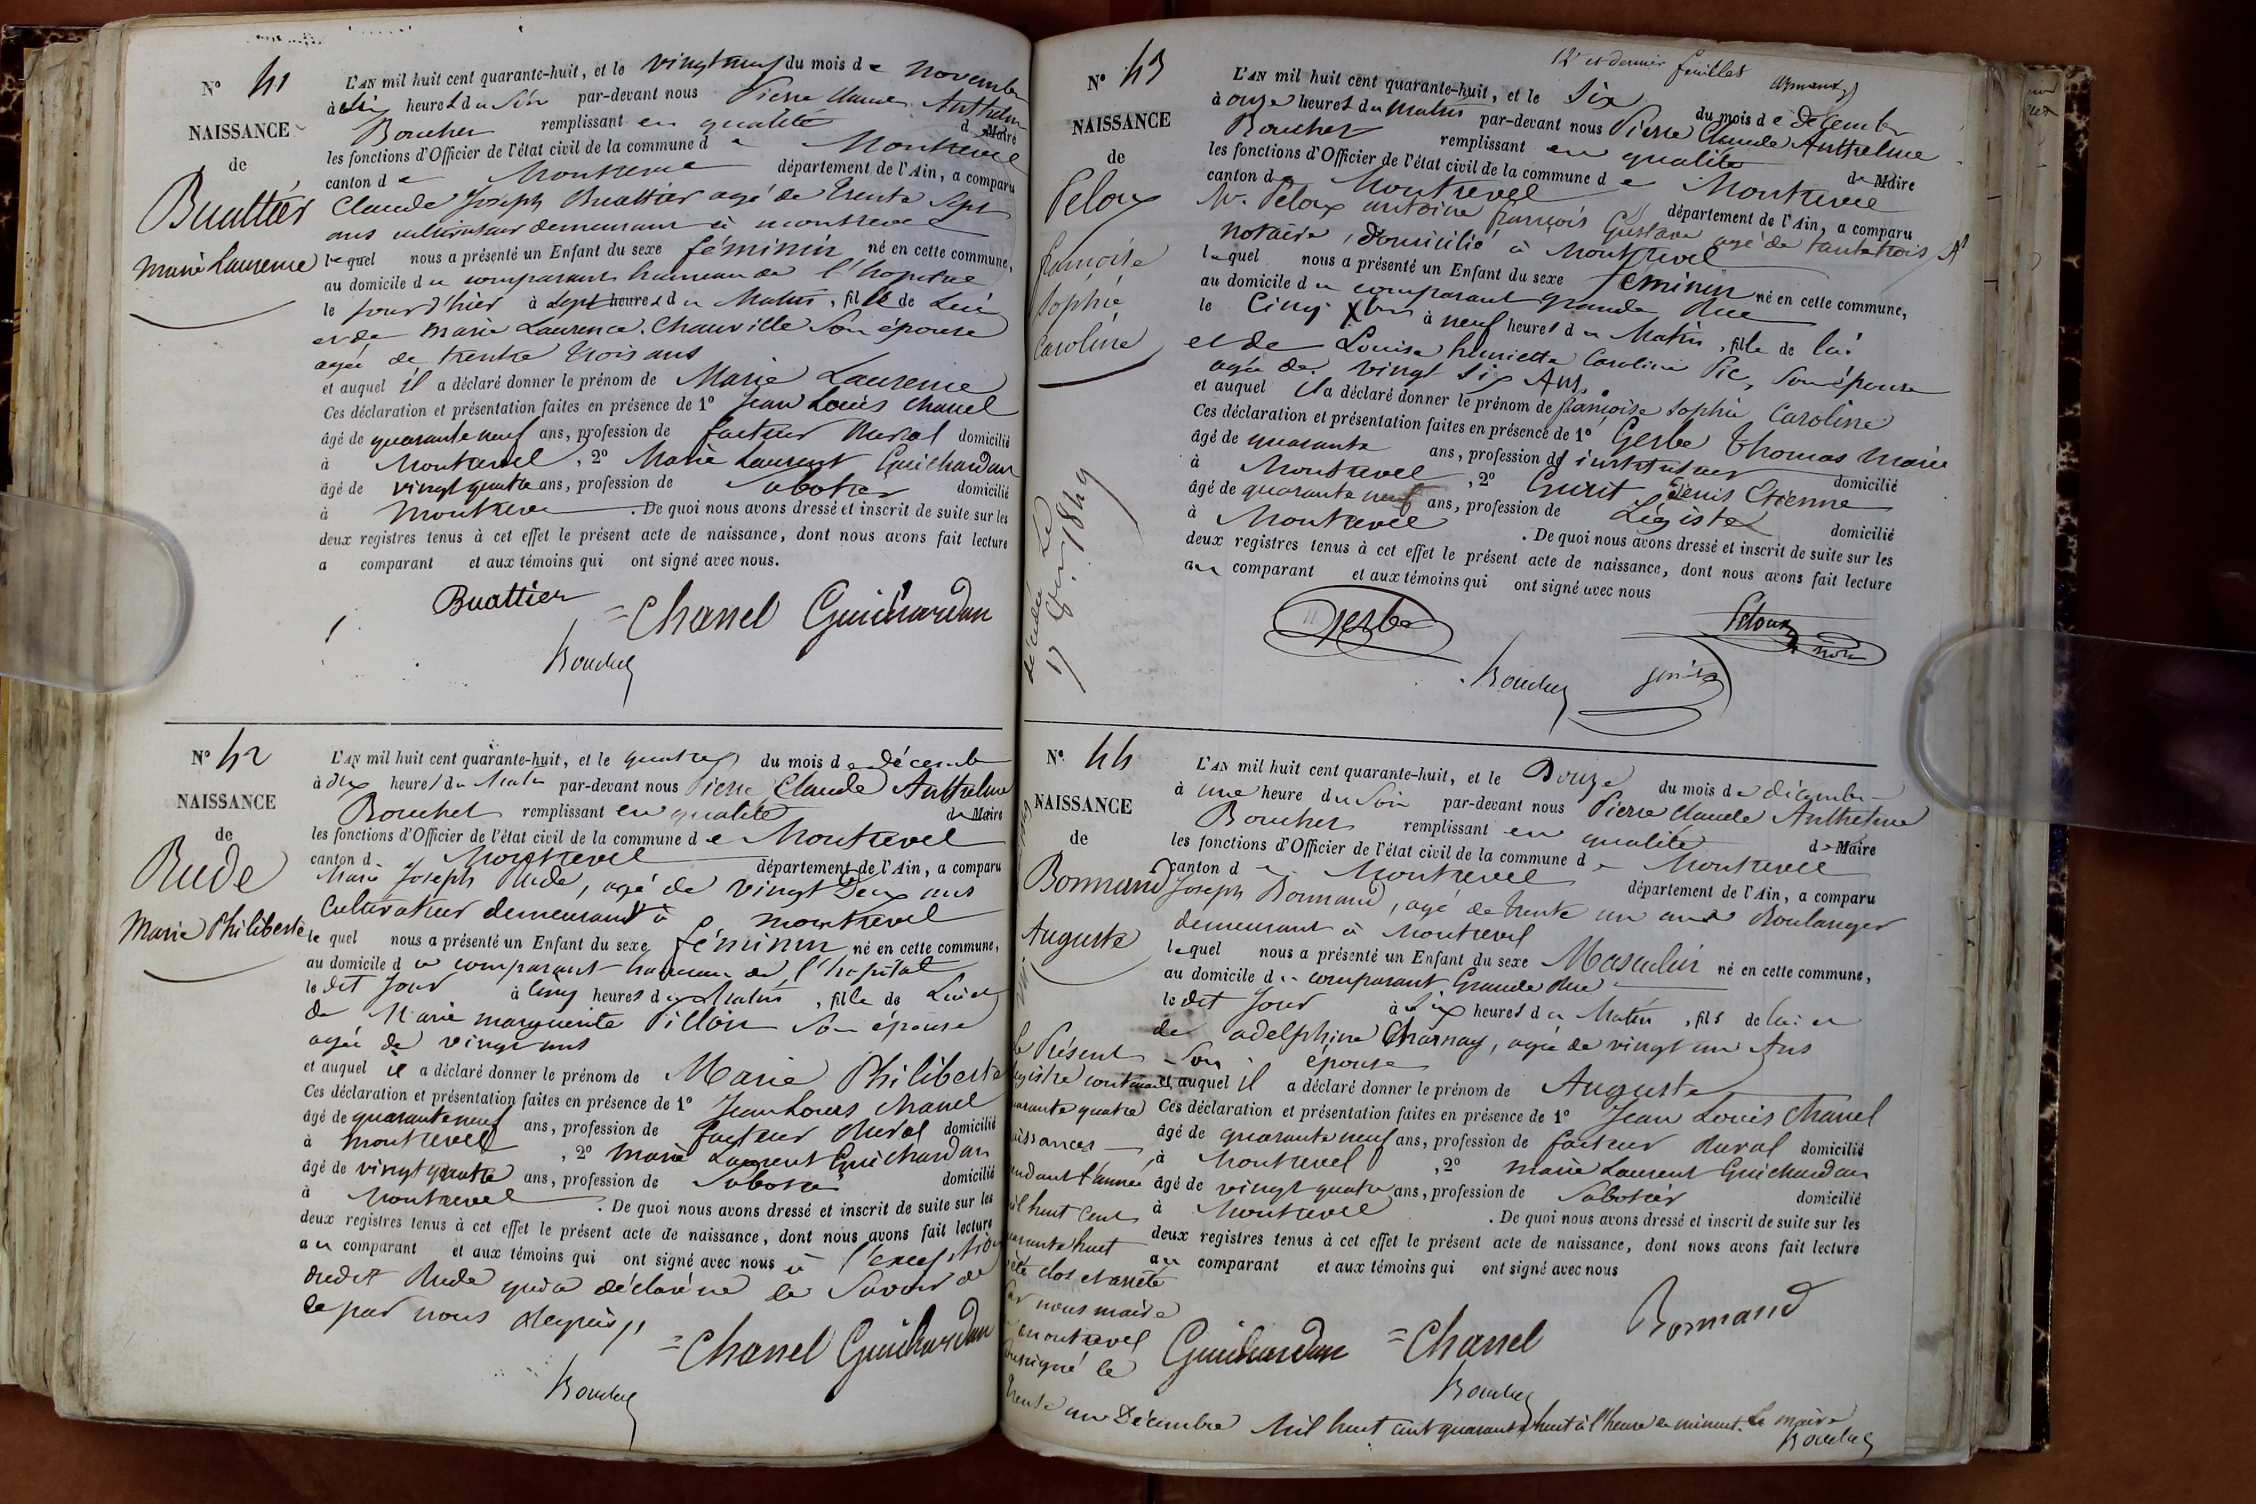 N° 41
NAISSANCE
de
Buattier
Marie Laurence
L'AN mil huit cent quarante-huit, et le vingt neuf du mois de novembre
à six heures du Soir par-devant nous Pierre Claude Anthelme
Bouchet remplissant en qualité de Maire
les fonctions d'Officier de l'état civil de la commune de Montrevel
canton de Montrevel département de l'Ain, a comparu
Claude Joseph Buattier agé de trente sept
ans cultivateur demeurant à montrevel
lequel nous a présenté un Enfant du sexe féminin né en cette commune,
au domicile du comparant hameau de l'hopital
le jour d'hier à sept heures du Matin, fille de Lui
et de Marie Laurence Chanville Son épouse
agée de trente trois ans
et auquel il a déclaré donner le prénom de Marie Laurence
Ces déclaration et présentation faites en présence de 1° Jean Louis Chanel
âgé de quarante neuf ans, profession de facteur Rural domicilié
à Montrevel, 2° Marie Laurent Guichardan
âgé de vingt quatre ans, profession de Sabotier domicilié
à Montrevel. De quoi nous avons dressé et inscrit de suite sur les
deux registres tenus à cet effet le présent acte de naissance, dont nous avons fait lecture
a comparant et aux témoins qui ont signé avec nous.
Buattier = Chanel Guichardan
Bouchet
N° 42
NAISSANCE
de
Rude
Marie Philiberte
L'AN mil huit cent quarante-huit, et le quatre du mois de décembre
à dix heures du Matin par-devant nous Pierre Claude Anthelme
Bouchet remplissant en qualité de Maire
les fonctions d'Officier de l'état civil de la commune de Montrevel
canton d Montrevel département de l'Ain, a comparu
Marie Joseph Rude, agé de vingt Deux ans
Cultivateur demeurant à montrevel
lequel nous a présenté un Enfant du sexe féminin né en cette commune,
au domicile du comparant hameau de l'hopital
le dit jour à cinq heures du Matin, fille de Lui et
de Marie marguerite Pillon Son épouse
agée de vingt ans
et auquel il a déclaré donner le prénom de Marie Philiberte
Ces déclaration et présentation faites en présence de 1° Jean Louis Chanel
âgé de quarante neuf ans, profession de facteur Rural domicilié
à montrevel, 2° Marie Laurent Guichardan
âgé de vingt quatre ans, profession de Sabotier domicilié
à Montrevel. De quoi nous avons dressé et inscrit de suite sur les
deux registres tenus à cet effet le présent acte de naissance, dont nous avons fait lecture
au comparant et aux témoins qui ont signé avec nous à l'exception
dudit Rude qui a déclaré ne le Savoir de
ce par nous Requis
= Chanel Guichardan
Bouchet
12e et dernier feuillet
N° 43
NAISSANCE
de
Peloux
françoise
Sophie
Caroline
décédée le
17 1849
L'AN mil huit cent quarante-huit, et le Six du mois de décembre
à onze heures du Matin par-devant nous Pierre Claude Anthelme
Bouchet remplissant en qualité de Maire
les fonctions d'Officier de l'état civil de la commune de Montrevel
canton de Montrevel département de l'Ain, a comparu
Mr. Péloux antoine françois Gustave agé de trente trois
notaire, domicilié à Montrevel
lequel nous a présenté un Enfant du sexe féminin né en cette commune,
au domicile du comparant grande Rue
le Cinq Xbre à neuf heures du Matin, fille de lui
et de Louise henriette Caroline Pic, Son épouse
agée de vingt Six Ans
et auquel il a déclaré donner le prénom de françoise Sophie Caroline
Ces déclaration et présentation faites en présence de 1° Gerbe Thomas Marie
âgé de quarante ans, profession d'instituteur domicilié
à Montrevel, 2° Denis Etienne
âgé de quarante neuf ans, profession de Légiste domicilié
à Montrevel. De quoi nous avons dressé et inscrit de suite sur les
deux registres tenus à cet effet le présent acte de naissance, dont nous avons fait lecture
au comparant et aux témoins qui ont signé avec nous
Gerbe Péloux
Bouchet
N° 44
NAISSANCE
de
Bonnand
Auguste
L'AN mil huit cent quarante-huit, et le Douze du mois de décembre
à une heure du Soir par-devant nous Pierre Claude Anthelme
Bouchet remplissant en qualité de Maire
les fonctions d'Officier de l'état civil de la commune de Montrevel
canton de Montrevel département de l'Ain, a comparu
Joseph Bonnand, agé de trente un ans Boulanger
demeurant à Montrevel
lequel nous a présenté un Enfant du sexe Masculin né en cette commune,
au domicile du comparant Grande Rue
le dit Jour à Six heures du Matin, fils de lui et
de adelphine Charnay, agée de vingt un Ans
Son épouse
et auquel il a déclaré donner le prénom de Auguste
Ces déclaration et présentation faites en présence de 1° Jean Louis Chanel
âgé de quarante neuf ans, profession de facteur Rural domicilié
à Montrevel, 2° Marie Laurent Guichardan
âgé de vingt quatre ans, profession de Sabotier domicilié
à Montrevel. De quoi nous avons dressé et inscrit de suite sur les
deux registres tenus à cet effet le présent acte de naissance, dont nous avons fait lecture
au comparant et aux témoins qui ont signé avec nous
Bonnand
Guichardan = Chanel
Bouchet
le Présent
registre contenant
quarante quatre
naissances
pendant l'année
mil huit cent
quarante huit
été clos et arrêté
par nous maire
montrevel
soussigné le
trente un Décembre Mil huit cent quarante huit à l'heure de minuit. Le maire
Bouchet